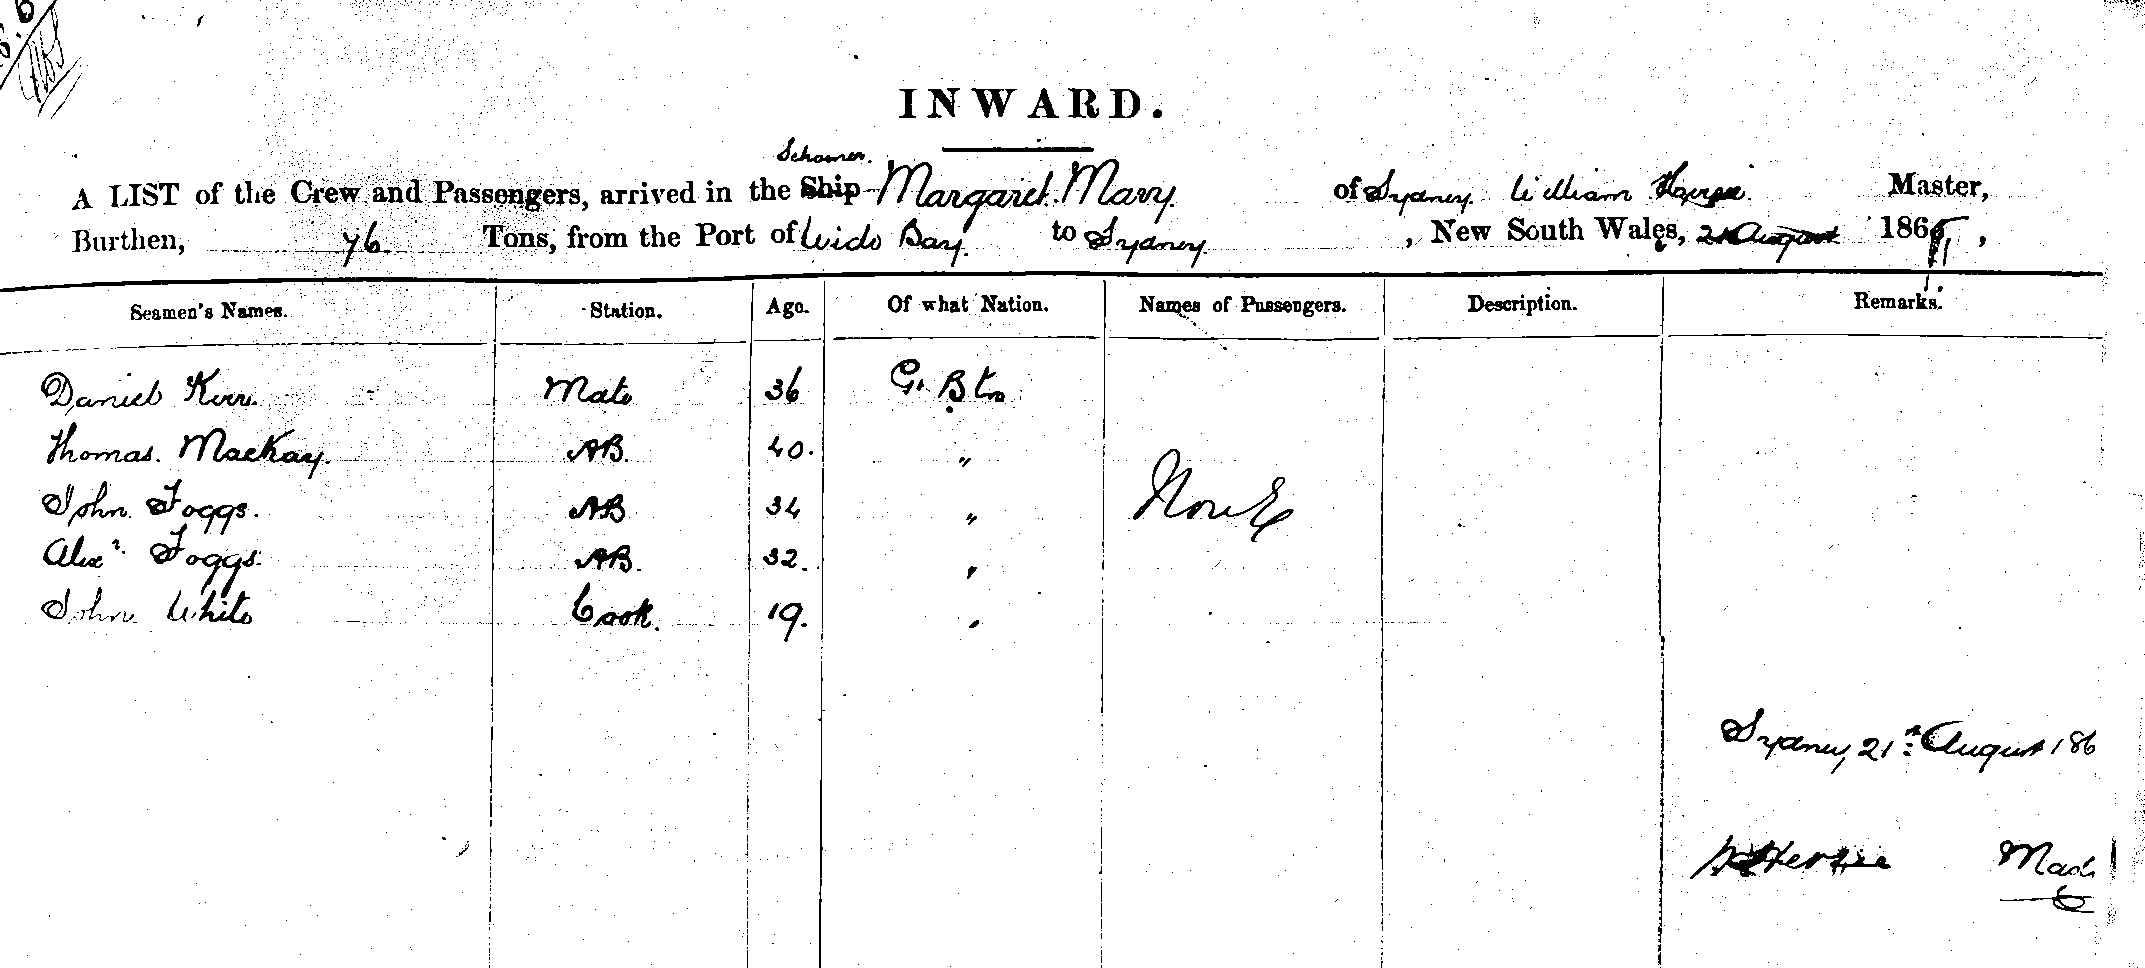 INWARD.
Schooner.
A LIST of the Crew and Passengers, arrived in the Ship Margaret Mary of Sydney William Master,
Burthen, 76 Tons, from the Port of Wide Bay. to Sydney , New South Wales, 21 August 186 ,
Seamen's Names. Station. Age. Of what Nation. Names of Passengers. Description. Remarks.
Daniel Kerr. Mate 36 G. Btn
Thomas. MacKay. AB. 40. "
John Foggs. AB 34 " None
Alexr. Foggs. AB. 32. "
John White Cook. 19. "
Sydney, 21st August 186